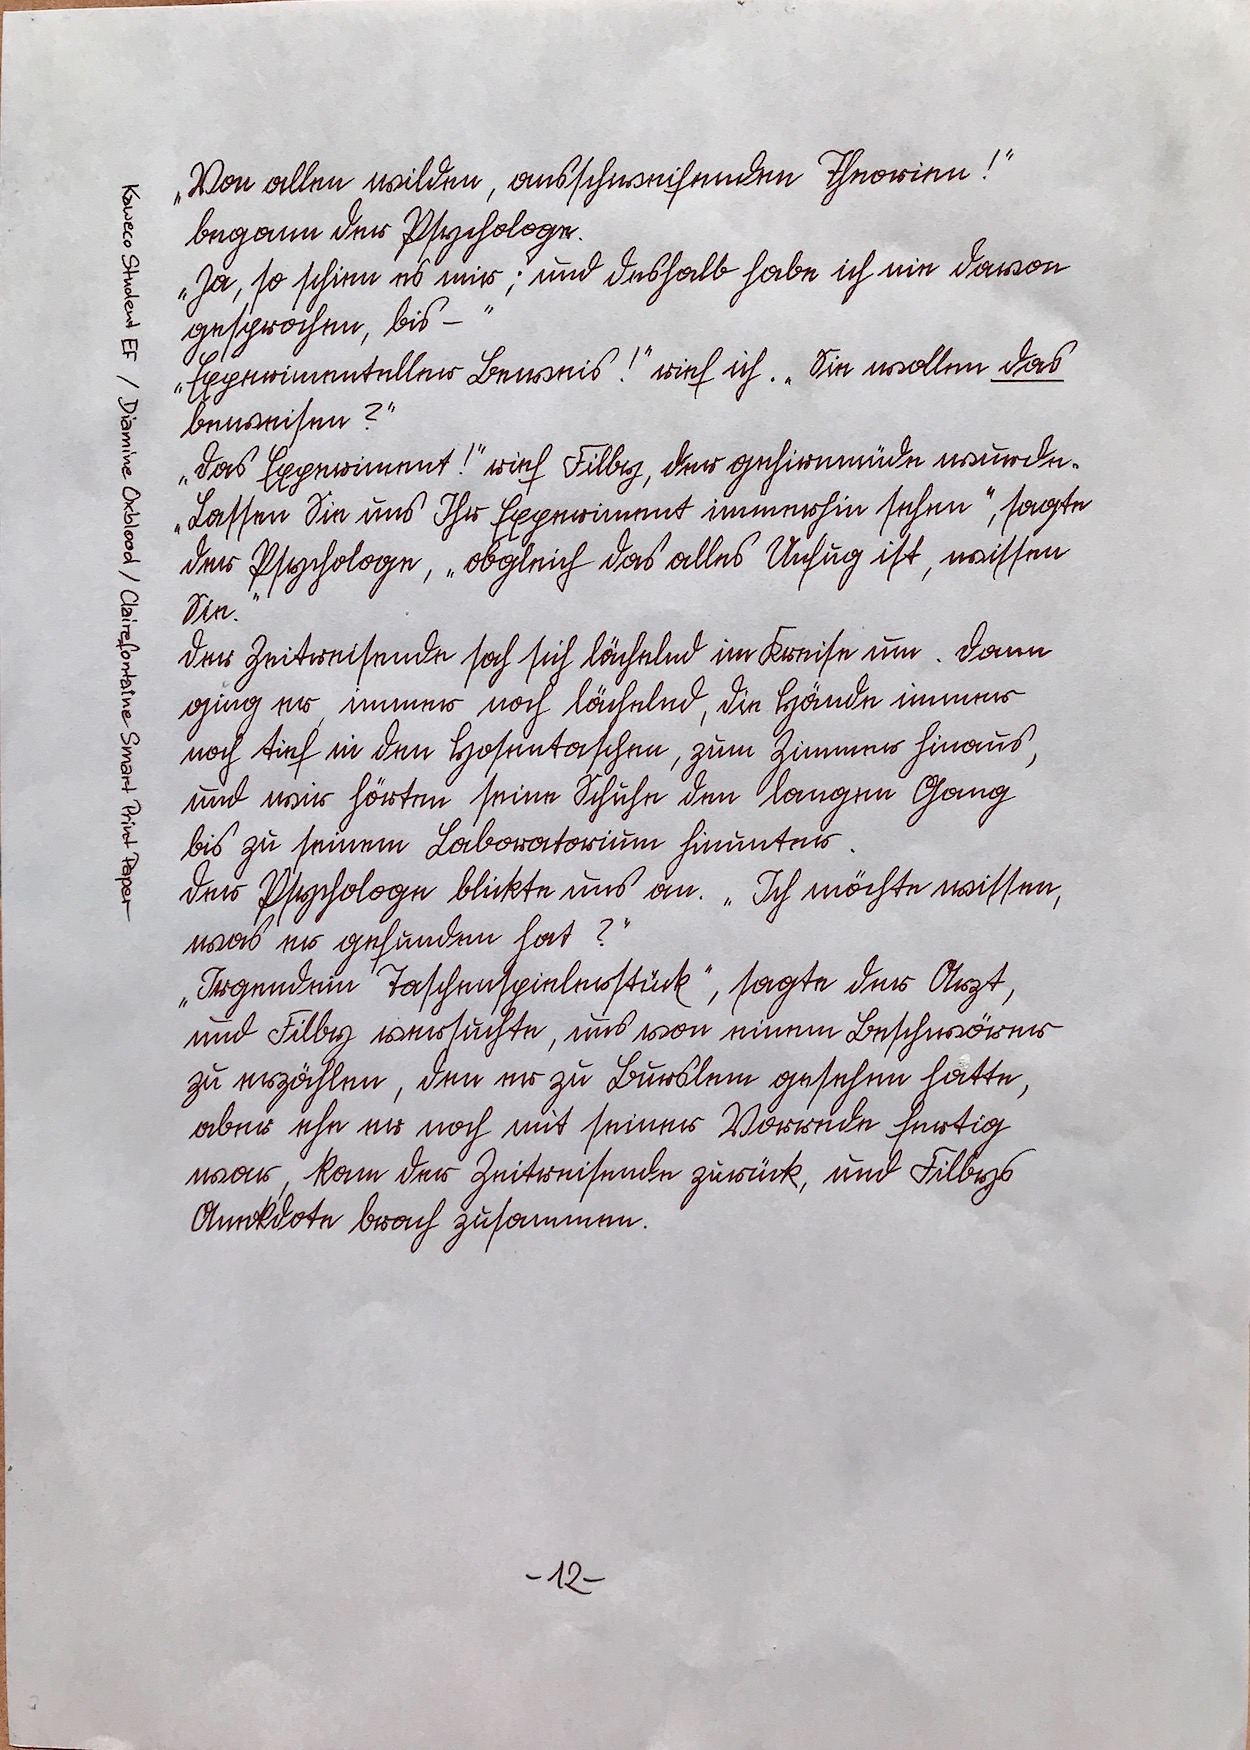 „Von allen wilden, ausschweifenden Theorien!“
begann der Psychologe.
„Ja, so schien es mir; und deshalb habe ich nie davon
gesprochen, bis – “
„Experimenteller Beweis!“ rief ich. „Sie wollen das
beweisen?“
„Das Experiment!“ rief Filby, der gehirnmüde wurde.
„Lassen Sie uns Ihr Experiment immerhin sehen“, sagte
der Psychologe, „obgleich das alles Unfug ist, wissen
Sie.“
Der Zeitreisende sah sich lächelnd im Kreise um. Dann
ging er, immer noch lächelnd, die Hände immer
noch tief in den Hosentaschen, zum Zimmer hinaus,
und wir hörten seine Schuhe den langen Gang
bis zu seinem Laboratorium hinunter.
Der Psychologe blickte uns an. „Ich möchte wissen,
was er gefunden hat?“
„Irgendein Taschenspielerstück“, sagte der Arzt,
und Filby versuchte, uns von einem Beschwörer
zu erzählen, den er zu Burslem gesehen hatte,
aber ehe er noch mit seiner Vorrede fertig
war, kam der Zeitreisende zurück, und Filbys
Anekdote brach zusammen.
-12-
Kaweco Student EF / Diamine Oxblood / Clairefontaine Smart Print Paper